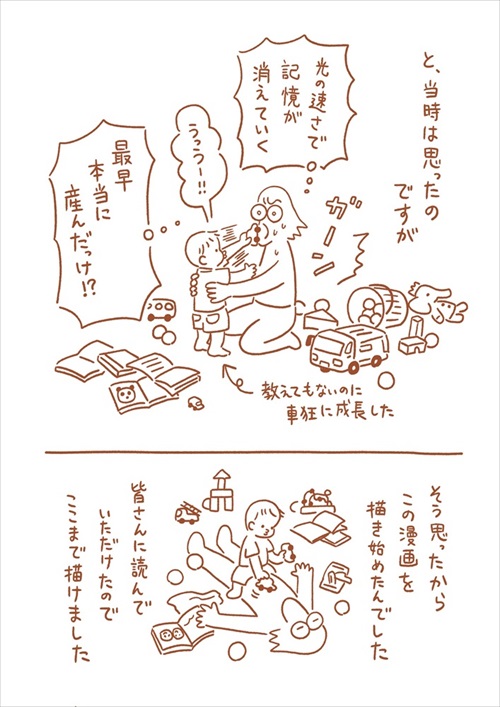 と、当時は思ったの
ですが
光の速さで
記憶が
消えていく
ガーン
うっうー!!
最早
本当に
産んだっけ!?
教えてもないのに
車狂に成長した
そう思ったから
この漫画を
描き始めたんでした
皆さんに読んで
いただけたので
ここまで描けました